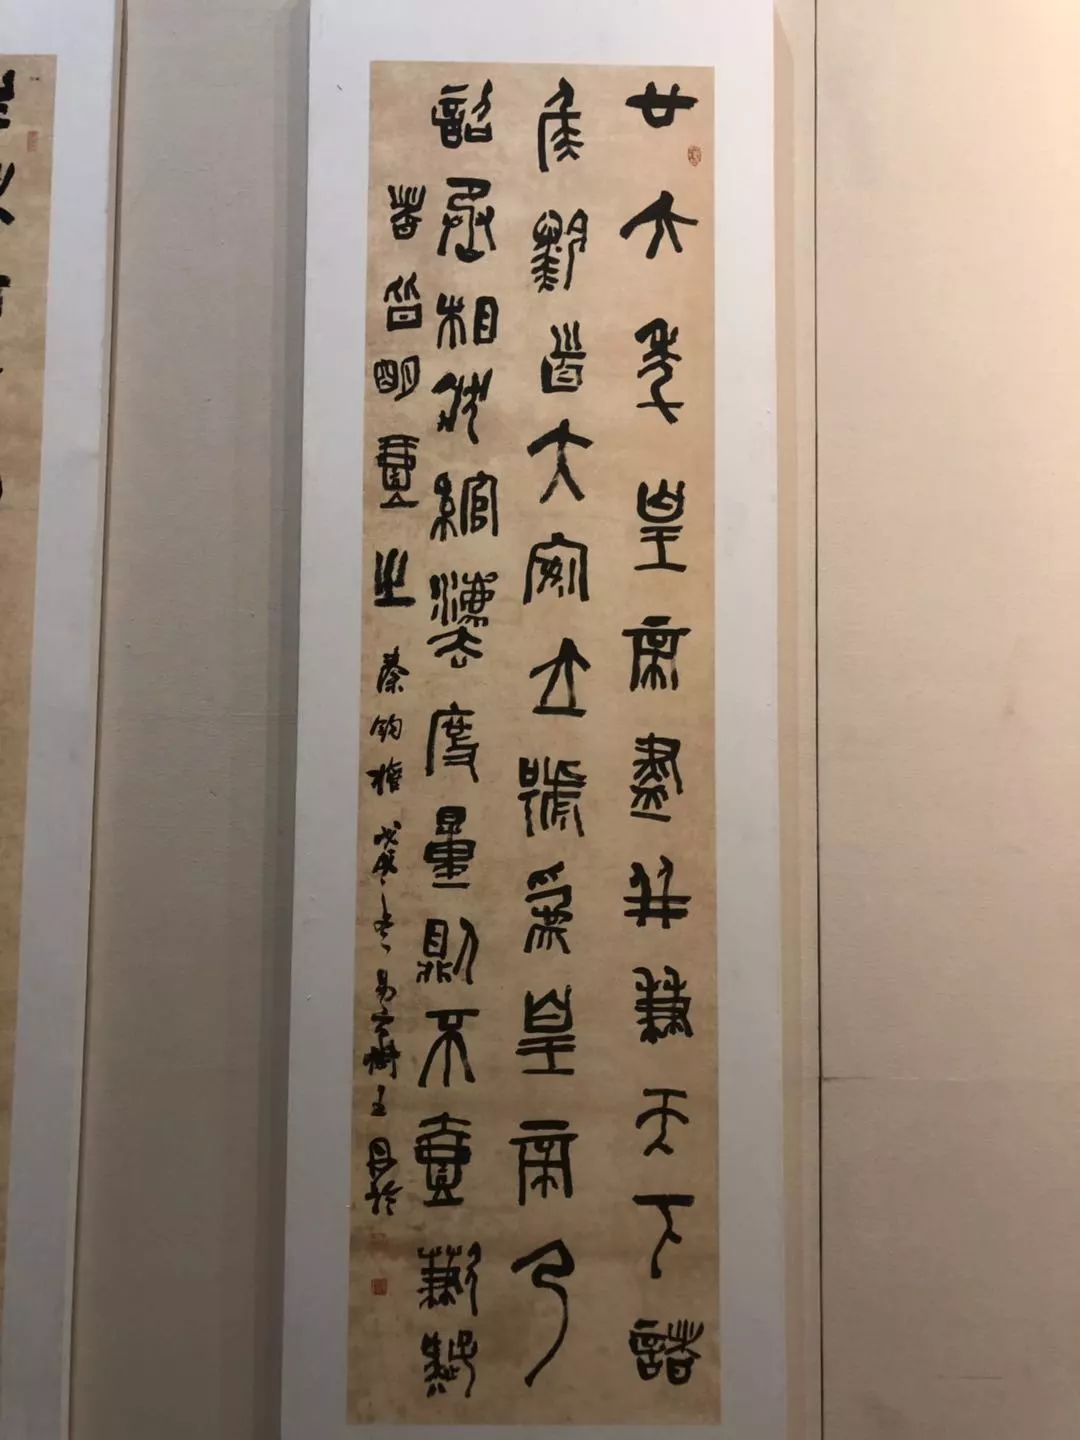 廿六年皇帝盡并兼天下諸
侯黔首大安立號爲皇帝乃
詔丞相狀綰灋度量則不壹歉疑
者皆明壹之
秦鈞權 戊戌